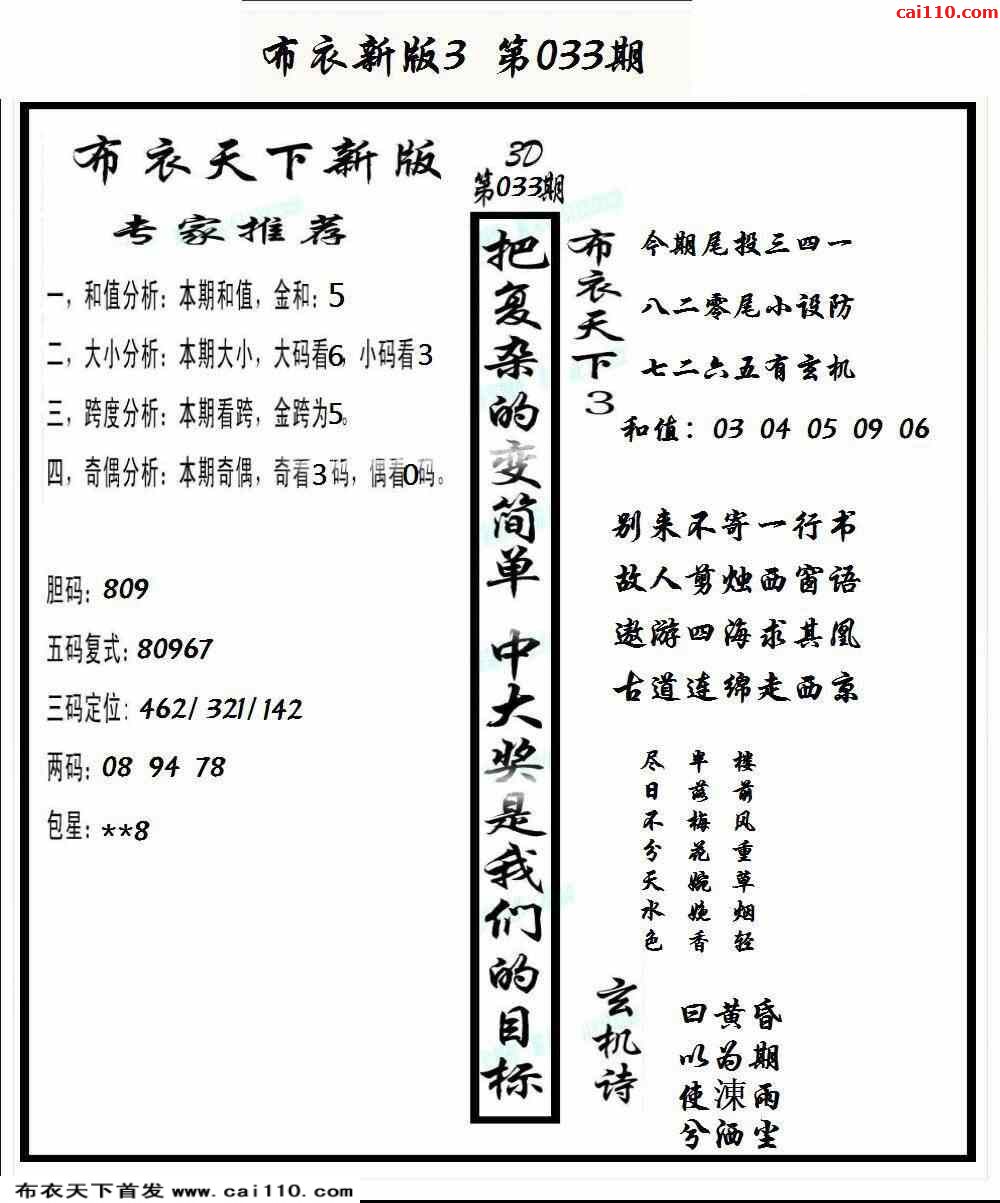 cai110.com
布衣新版3 第033期
布衣天下新版
专家推荐
一，和值分析：本期和值，金和：5
二，大小分析：本期大小，大码看6，小码看3
三，跨度分析：本期看跨，金跨为5。
四，奇偶分析：本期奇偶，奇看3码，偶看0码。
胆码：809
五码复式：80967
三码定位：462/321/142
两码：08 94 78
包星：**8
3D
第033期
把复杂的变简单 中大奖是我们的目标
布衣天下3
今期尾投三四一
八二零尾小设防
七二六五有玄机
和值：03 04 05 09 06
别来不寄一行书
故人剪烛西窗语
遨游四海求其凰
古道连绵走西京
楼前风重草烟轻
半落梅花婉娩香
尽日不分天水色
玄机诗
曰黄昏
以为期
使涷雨
兮洒尘
布衣天下首发 www.cai110.com